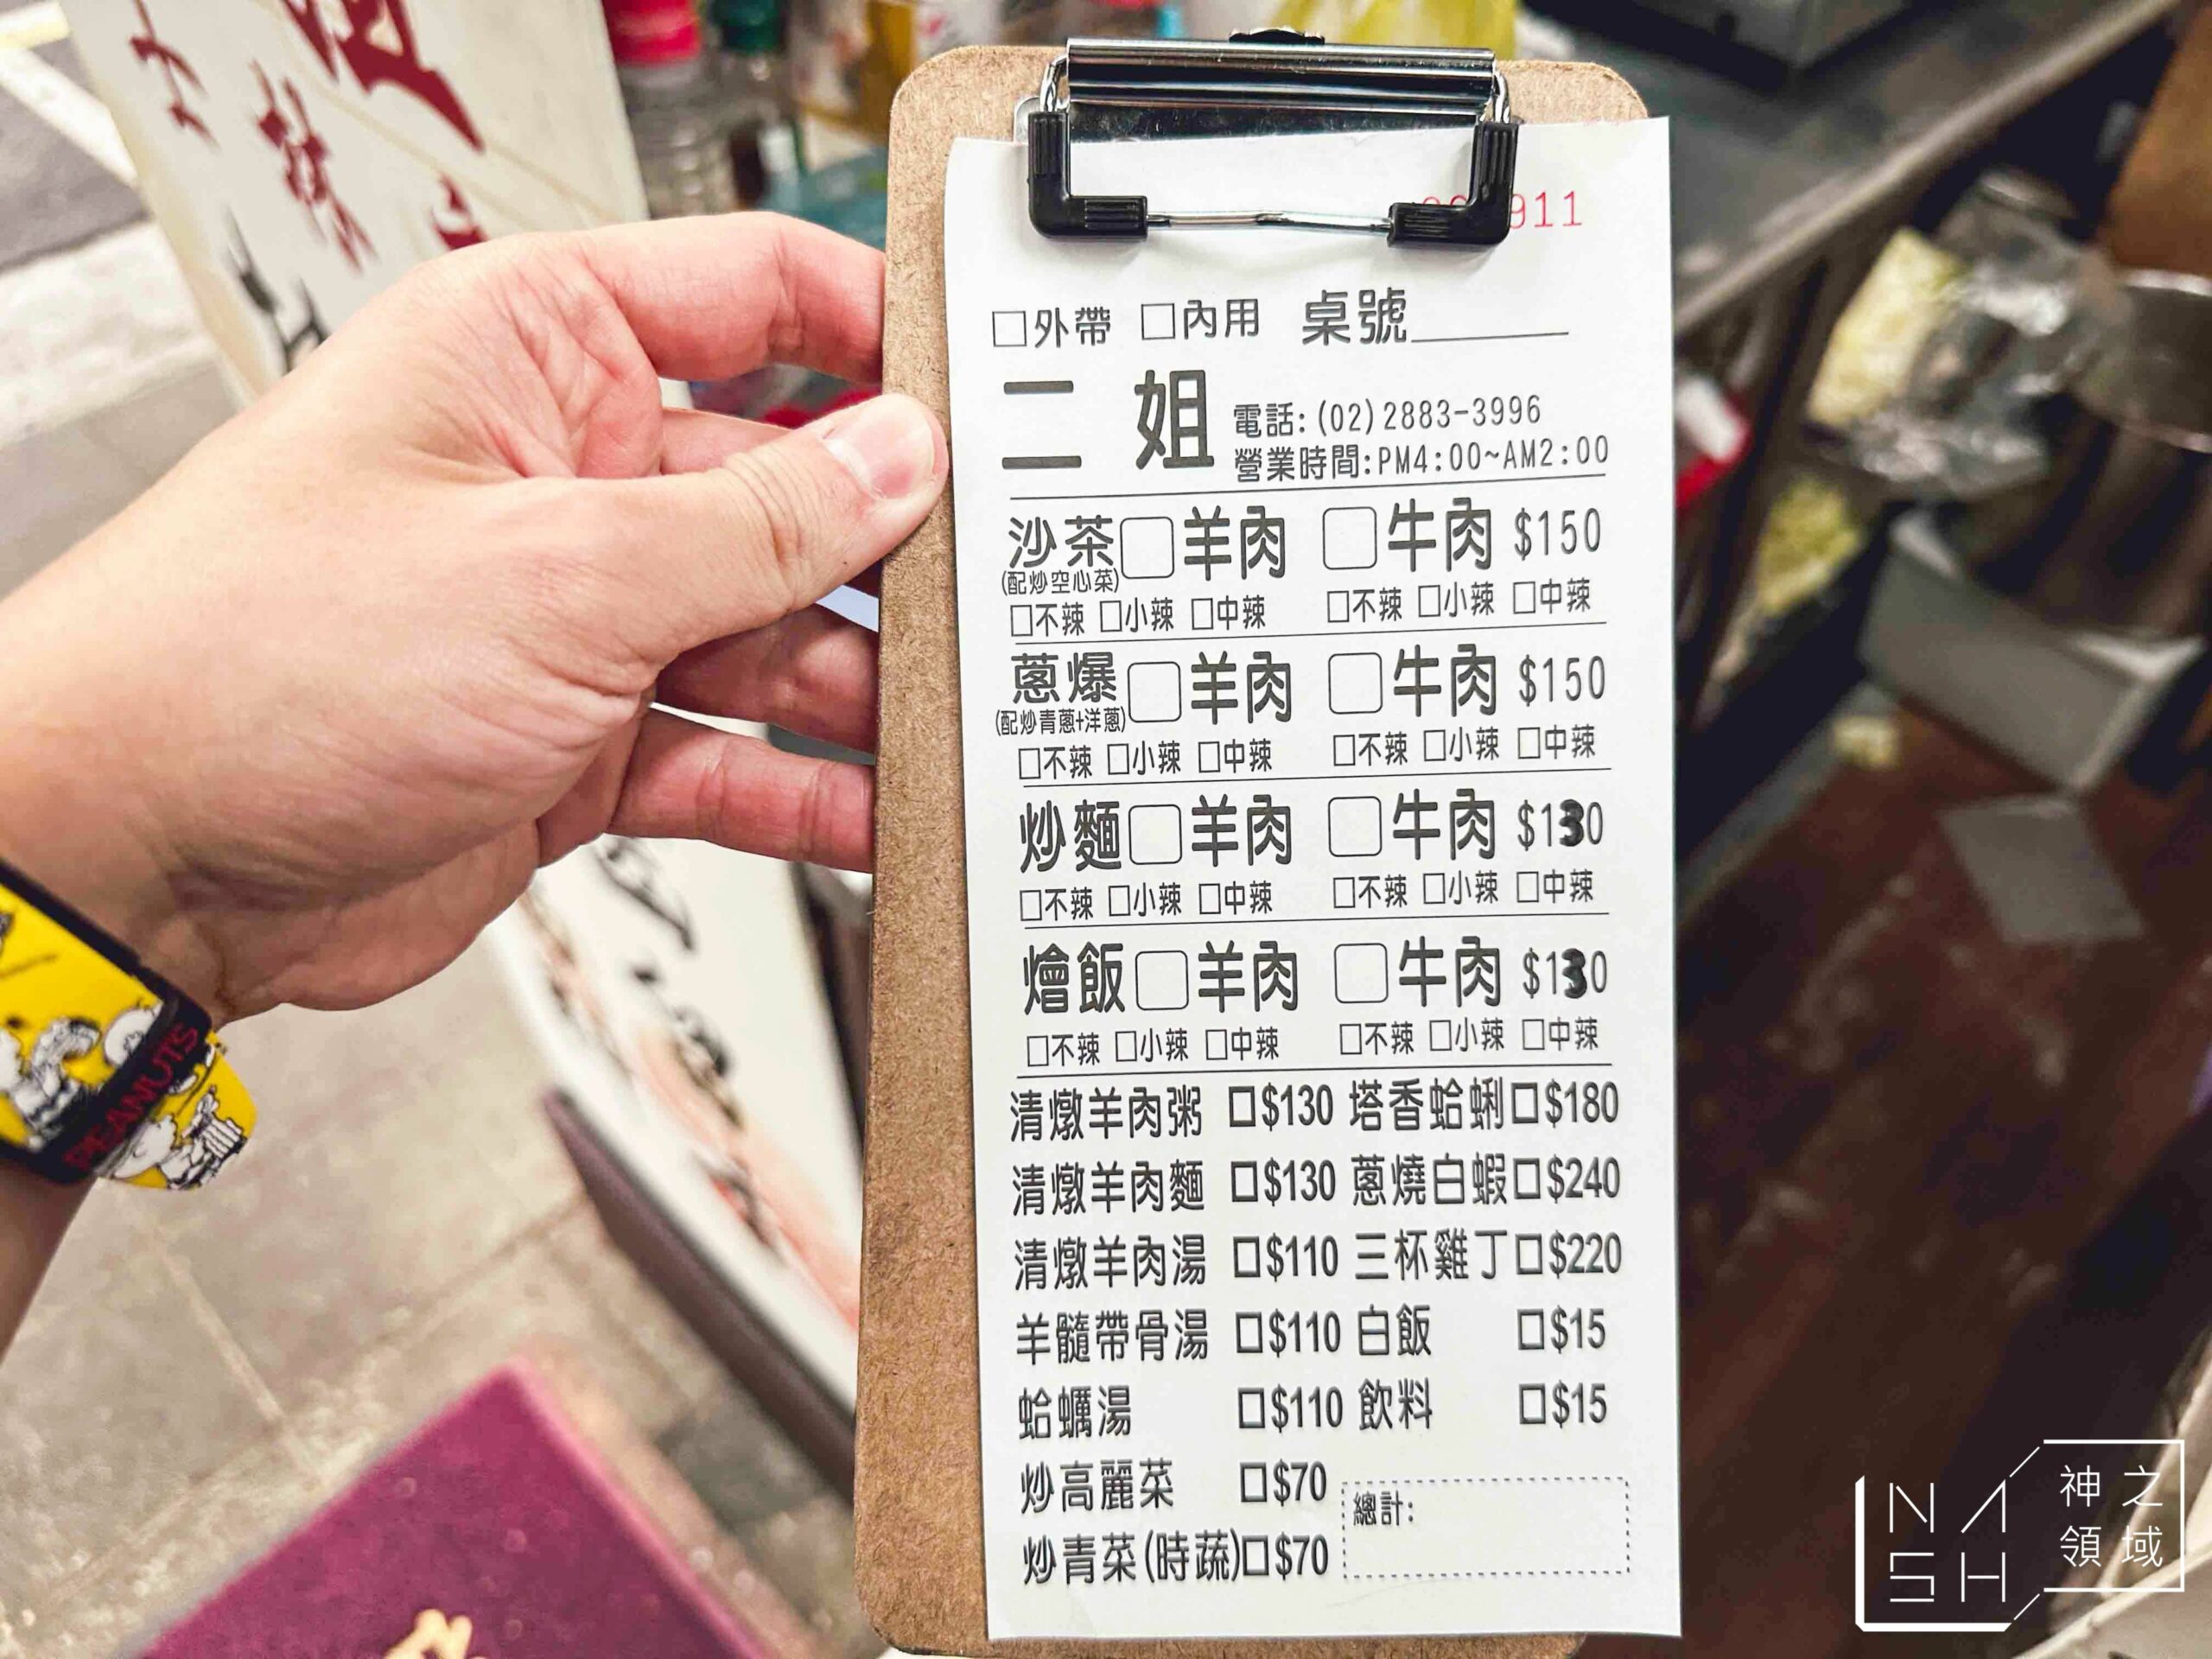 911
□外帶 □內用 桌號
二姐 電話:(02)2883-3996
營業時間:PM4:00~AM2:00
沙茶□羊肉 □牛肉 $150
(配炒空心菜)
□不辣 □小辣 □中辣 □不辣 □小辣 □中辣
蔥爆□羊肉 □牛肉 $150
(配炒青蔥+洋蔥)
□不辣 □小辣 □中辣 □不辣 □小辣 □中辣
炒麵□羊肉 □牛肉 $130
□不辣 □小辣 □中辣 □不辣 □小辣 □中辣
燴飯□羊肉 □牛肉 $130
□不辣 □小辣 □中辣 □不辣 □小辣 □中辣
清燉羊肉粥 □$130 塔香蛤蜊□$180
清燉羊肉麵 □$130 蔥燒白蝦□$240
清燉羊肉湯 □$110 三杯雞丁□$220
羊髓帶骨湯 □$110 白飯 □$15
蛤蠣湯 □$110 飲料 □$15
炒高麗菜 □$70
炒青菜(時蔬)□$70
總計:
PEANUTS
NASH
神之
領域